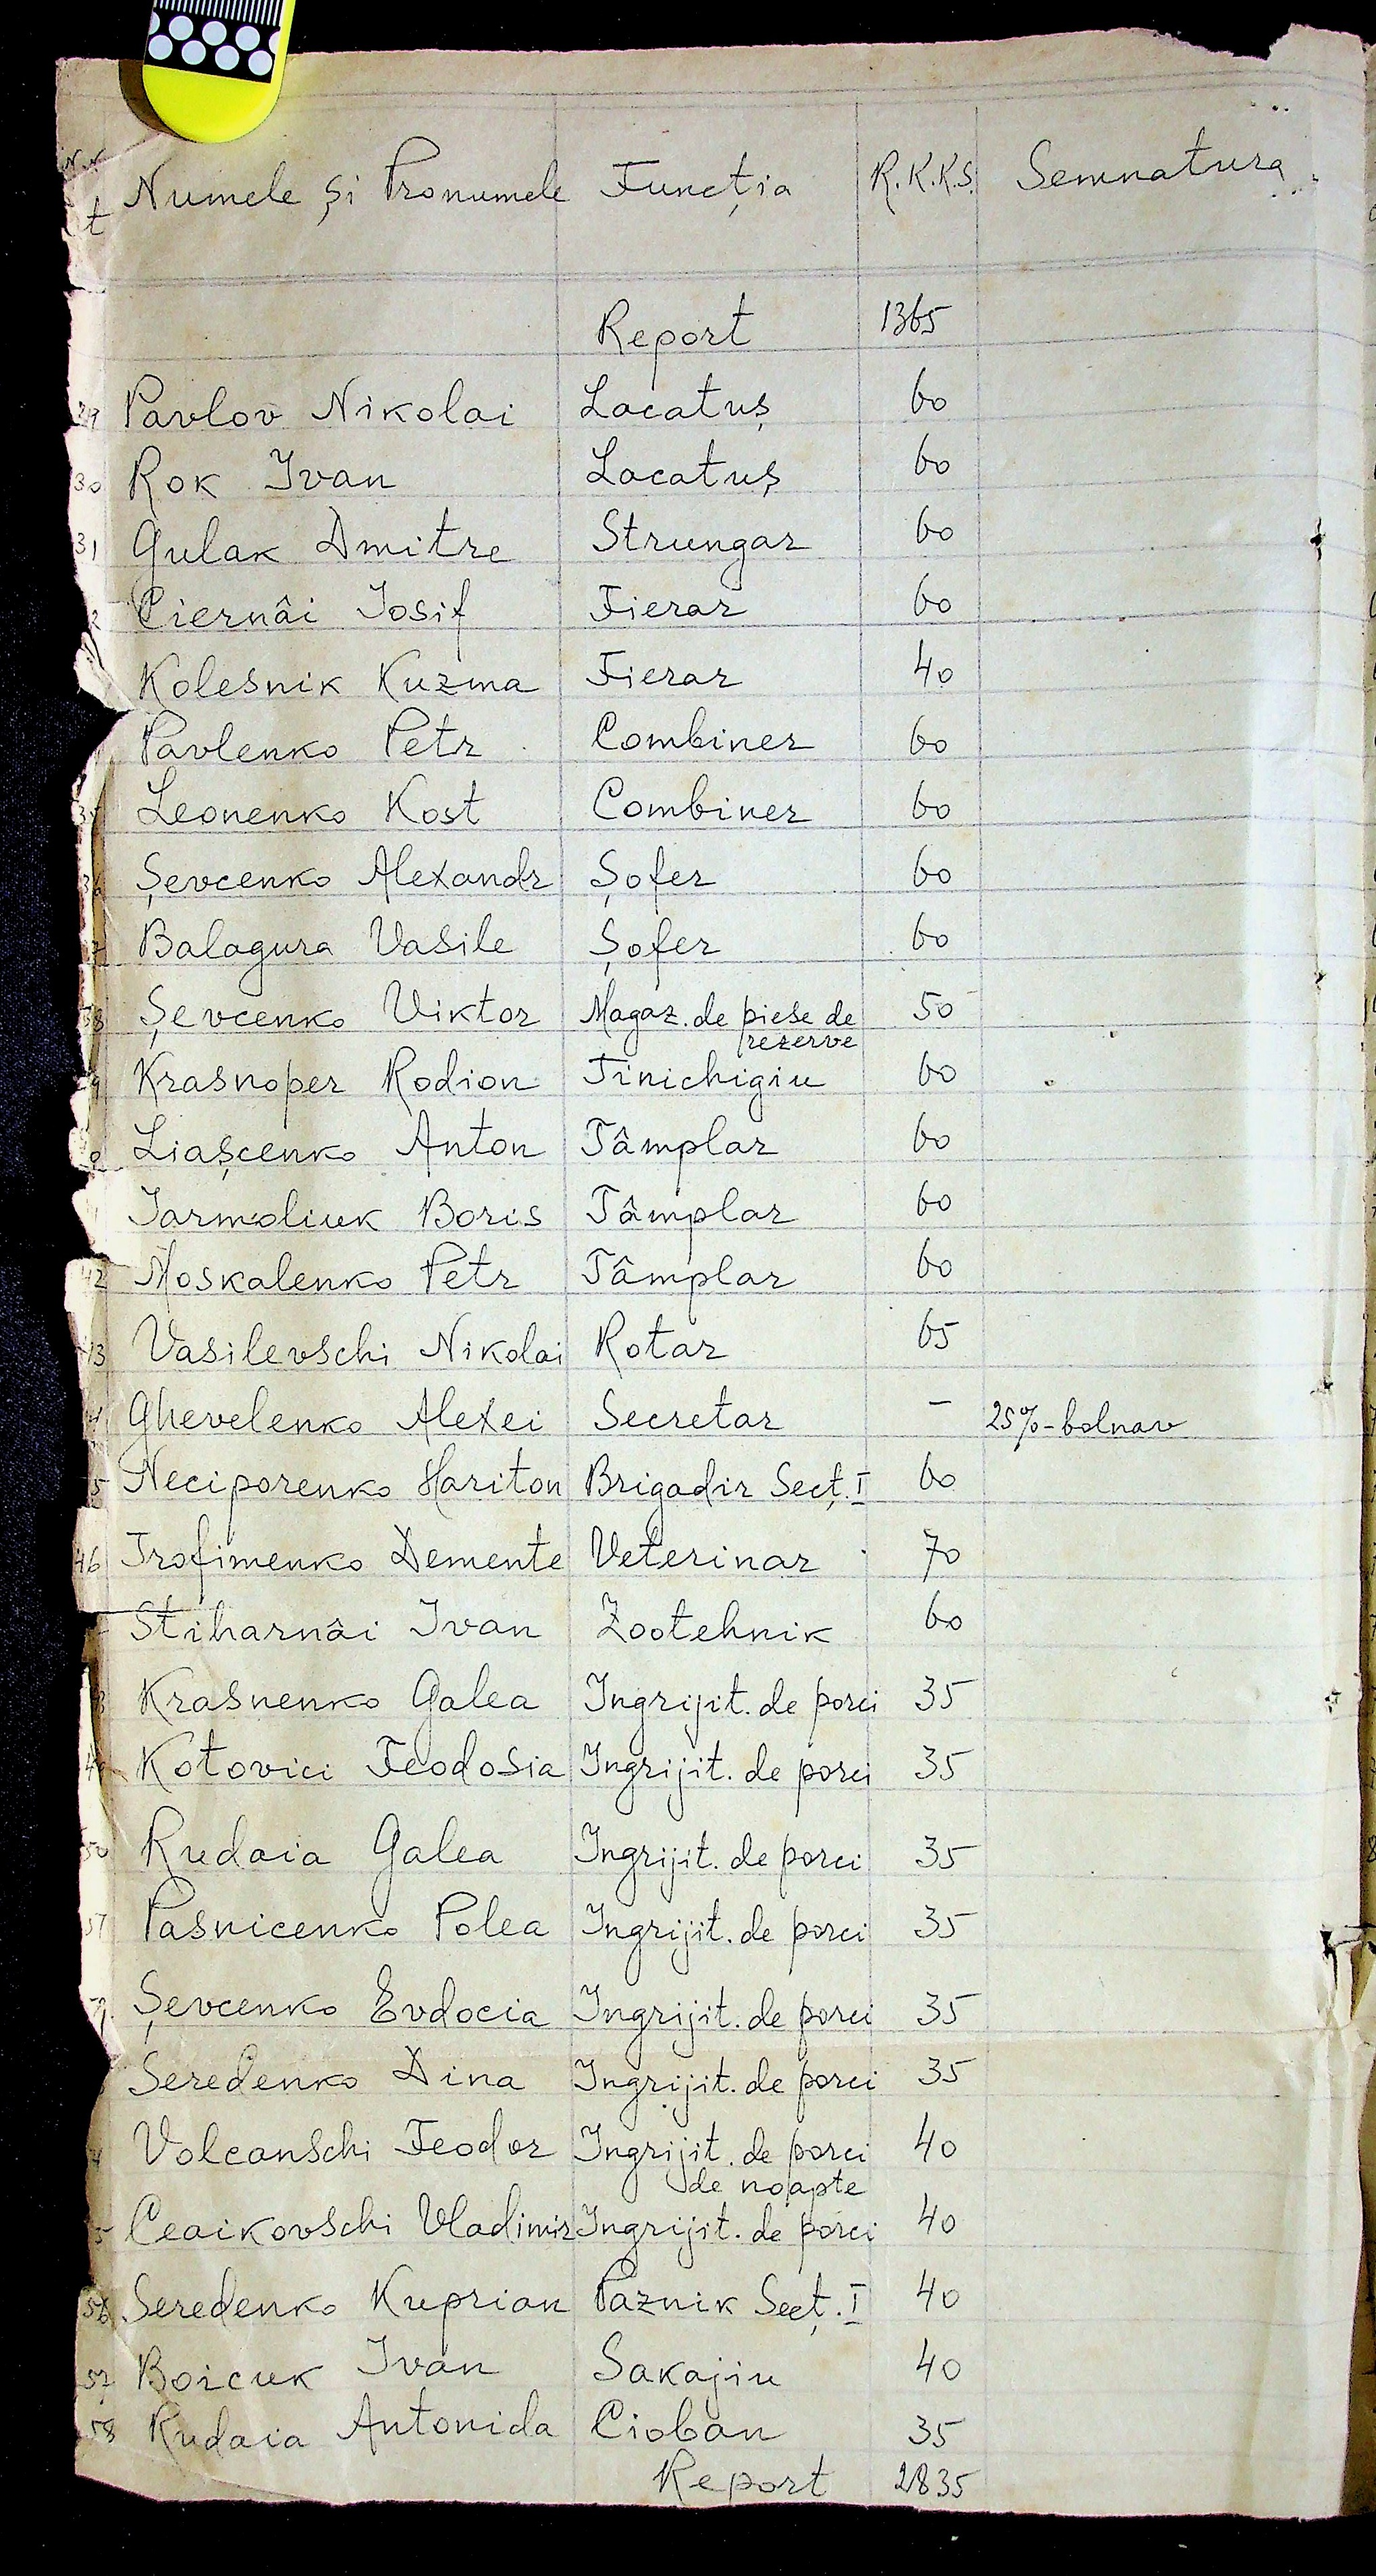 N.N
t Numele și Pronumele Funcția R.K.K.S. Semnatura
Report 1365
29 Pavlov Nikolai Lacatuș 60
30 Rok Ivan Lacatuș 60
31 Gulak Dmitre Strungar 60
2 Ciernâi Iosif Fierar 60
Kolesnik Kuzma Fierar 40
Pavlenko Petr Combiner 60
35 Leonenko Kost Combiner 60
36 Șevcenko Alexandr Șofer 60
7 Balagura Vasile Șofer 60
38 Șevcenko Viktor Magaz. de piese de 50
rezerve
9 Krasnoper Rodion Tinichigiu 60
0 Liașcenko Anton Tâmplar 60
1 Iarmoliuk Boris Tâmplar 60
42 Moskalenko Petr Tâmplar 60
43 Vasilevschi Nikolai Rotar 65
4 Ghevelenko Alexei Secretar - 25%-bolnav
5 Neciporenko Hariton Brigadir Secț. I 60
46 Trofimenko Demente Veterinar 70
Stiharnâi Ivan Zootehnik 60
8 Krasnenko Galea Ingrijit. de porci 35
49 Kotovici Feodosia Ingrijit. de porci 35
50 Rudaia Galea Ingrijit. de porci 35
51 Pasnicenko Polea Ingrijit. de porci 35
52 Șevcenko Evdocia Ingrijit. de porci 35
Seredenko Dina Ingrijit. de porci 35
4 Volcanschi Feodor Ingrijit. de porci 40
de noapte
5 Ceaikovschi Vladimir Ingrijit. de porci 40
56 Seredenko Kuprian Paznik Secț. I 40
57 Boicuk Ivan Sakajiu 40
58 Rudaia Antonida Cioban 35
Report 2835